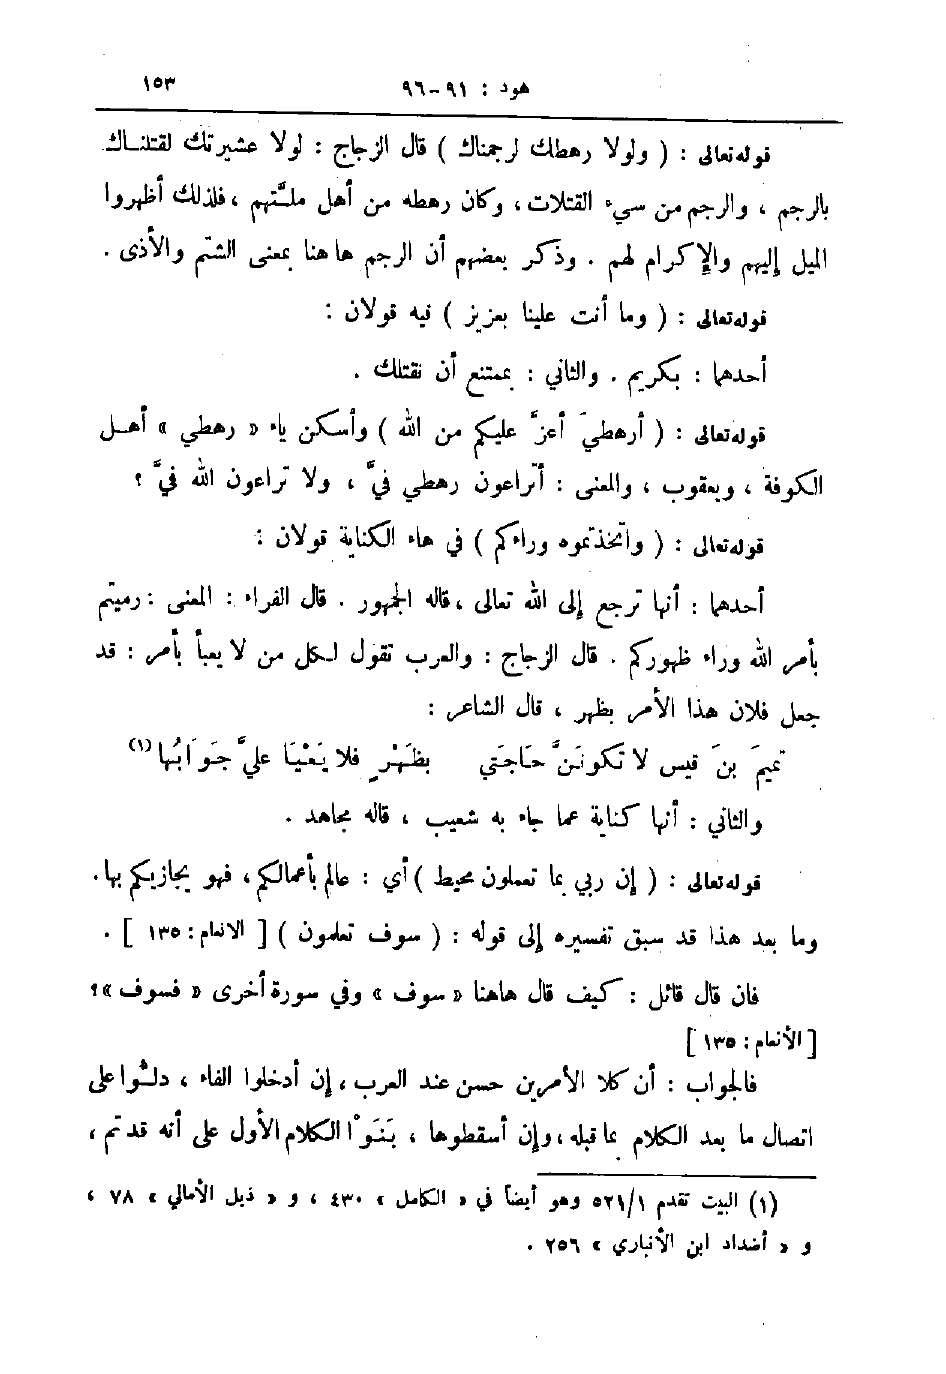 هود : ٩١-٩٦ ١٥٣
قوله تعالى : ( ولولا رهطك لرجمناك ) قال الزجاج : لولا عشيرتك لقتلنـاك
بالرجم ، والرجم من سيء القتلات ، وكان رهطه من أهل ملـَّتهم ، فلذلك أظهروا
الميل إليهم والإكرام لهم . وذكر بعضهم أن الرجم هاهنا بمعنى الشتم والأذى .
قوله تعالى : ( وما أنت علينا بعزيز ) فيه قولان :
أحدهما : بكريم . والثاني : بممتنع أن نقتلك .
قوله تعالى : ( أرهطيَ أعزُّ عليكم من الله ) وأسكن ياء « رهطي » أهـل
الكوفة ، ويعقوب ، والمعنى : أتراعون رهطي فيَّ ، ولا تراعون الله فيَّ ؟
قوله تعالى : ( واتخذتموه وراءكم ) في هاء الكناية قولان :
أحدهما : أنها ترجع إلى الله تعالى ، قاله الجمهور . قال الفراء : المعنى : رميتم
بأمر الله وراء ظهوركم . قال الزجاج : والعرب تقول لكل من لا يعبأ بأمر : قد
جعل فلان هذا الأمر بظهر ، قال الشاعر :
تميمَ بنَ قيس لا تكونَنَّ حَاجَتي بظَهْرٍ فلا يَعْيَا عليَّ جَوَابُها (١)
والثاني : أنها كناية عما جاء به شعيب ، قاله مجاهد .
قوله تعالى : ( إن ربي بما تعملون محيط ) أي : عالم بأعمالكم ، فهو يجازيكم بها .
وما بعد هذا قد سبق تفسيره إلى قوله : ( سوف تعلمون ) [ الانعام : ١٣٥ ] .
فان قال قائل : كيف قال هاهنا « سوف » وفي سورة أخرى « فسوف » ؟
[ الأنعام : ١٣٥ ]
فالجواب : أن كلا الأمرين حسن عند العرب ، إن أدخلوا الفاء ، دلـُّوا على
اتصال ما بعد الكلام بما قبله ، وإن أسقطوها ، بَنَوْا الكلام الأول على أنه قد تم ،
(١) البيت تقدم ٥٢١/١ وهو أيضاً في « الكامل » ٤٣٠ ، و « ذيل الأمالي » ٧٨ ،
و « أضداد ابن الأنباري » ٢٥٦ .